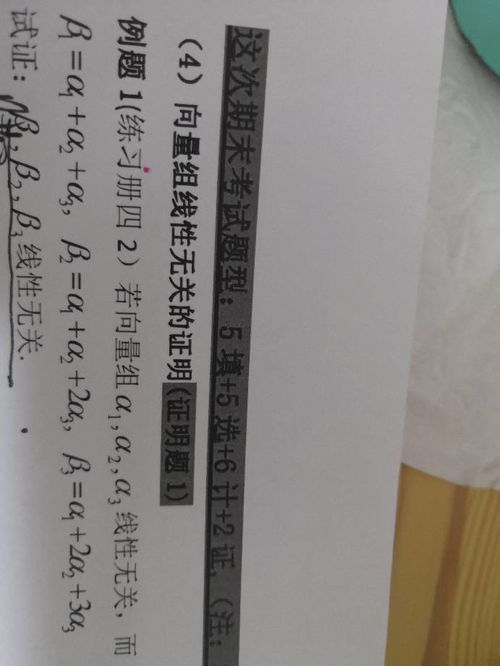 这次期末考试题型：5填+5选+6计+2证.（注：
（4）向量组线性无关的证明(证明题1)
例题1(练习册四2）若向量组α₁,α₂,α₃线性无关，而
β₁=α₁+α₂+α₃, β₂=α₁+α₂+2α₃, β₃=α₁+2α₂+3α₃
试证：β₁,β₂,β₃线性无关.